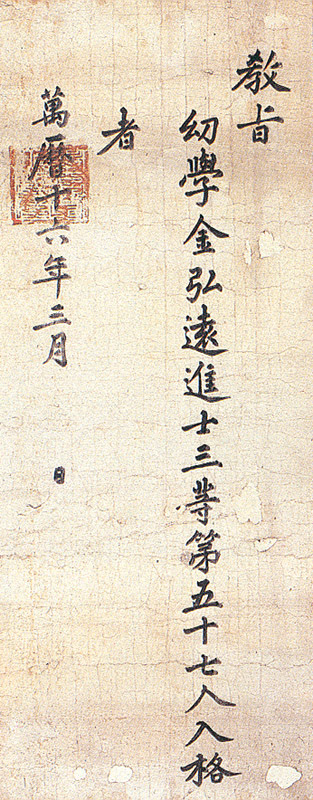 敎旨
幼學金弘遠進士三等第五十七人入格
者
萬曆十六年三月 日